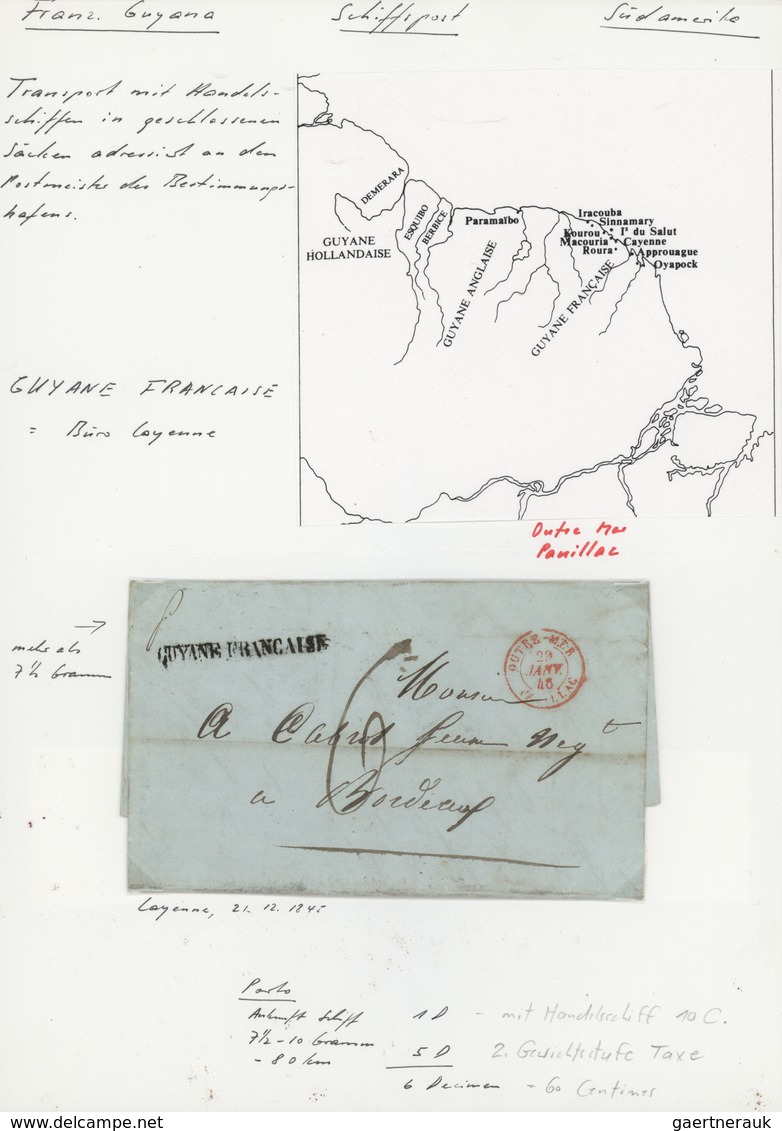 Franz. Guyana Schiffspost Südamerika
Transport mit Handels-
schiffen in geschlossenen
Säcken adressiert an den
Postmeister des Bestimmungs-
hafens.
GUYANE FRANCAISE
= Büro Cayenne
DEMERARA
ESQUIBO
BERBICE
GUYANE
HOLLANDAISE
Paramaïbo
GUYANE ANGLAISE
GUYANE FRANÇAISE
Iracouba
Sinnamary
Kourou Iˢ du Salut
Macouria Cayenne
Roura Approuague
Oyapock
Outre Mer
Pauillac
mehr als
7½ Gramm
GUYANE FRANCAISE
OUTRE-MER
29
JANV.
46
LLAC
6
Monsieur
A
a Bordeaux
Cayenne, 21. 12. 1845
Porto
Ankunft Schiff 1 D - mit Handelsschiff 10 C.
7½ - 10 Gramm
- 80 km 5 D 2. Gewichtsstufe Taxe
6 Decimen = 60 Centimes
gaertnerauk